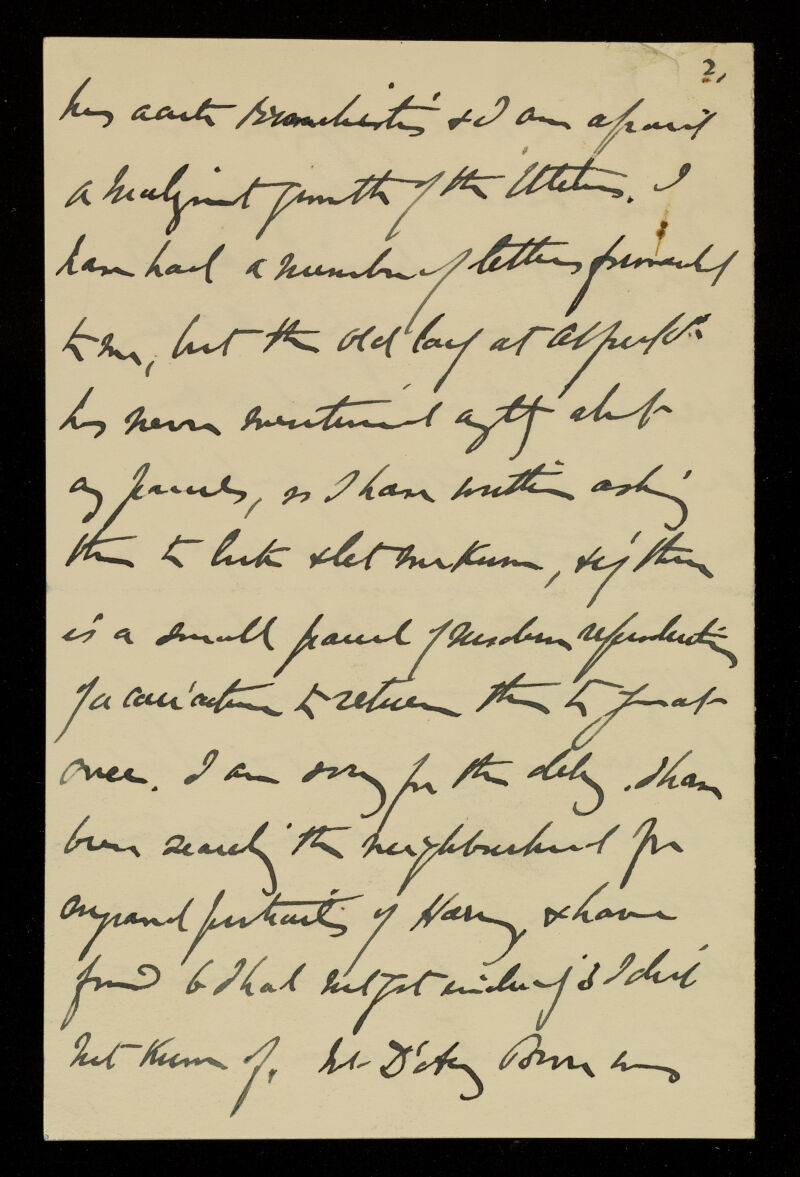 2.
has acute Bronchitis & I am afraid
a malignant growth of the Uterus. I
have had a number of letters forwarded
to me, but the old lady at
has never mentioned anything about
any parcels, so I have written asking
them to look & let me know, & if there
is a small parcel of modern reproductions
of a caricature to return them to you at
once. I am sorry for the delay. I have
been searching the neighbourhood for
engraved portraits of Harvey, & have
found 6 I had not got including 3 I did
not know of. Mr D'Arcy Power was